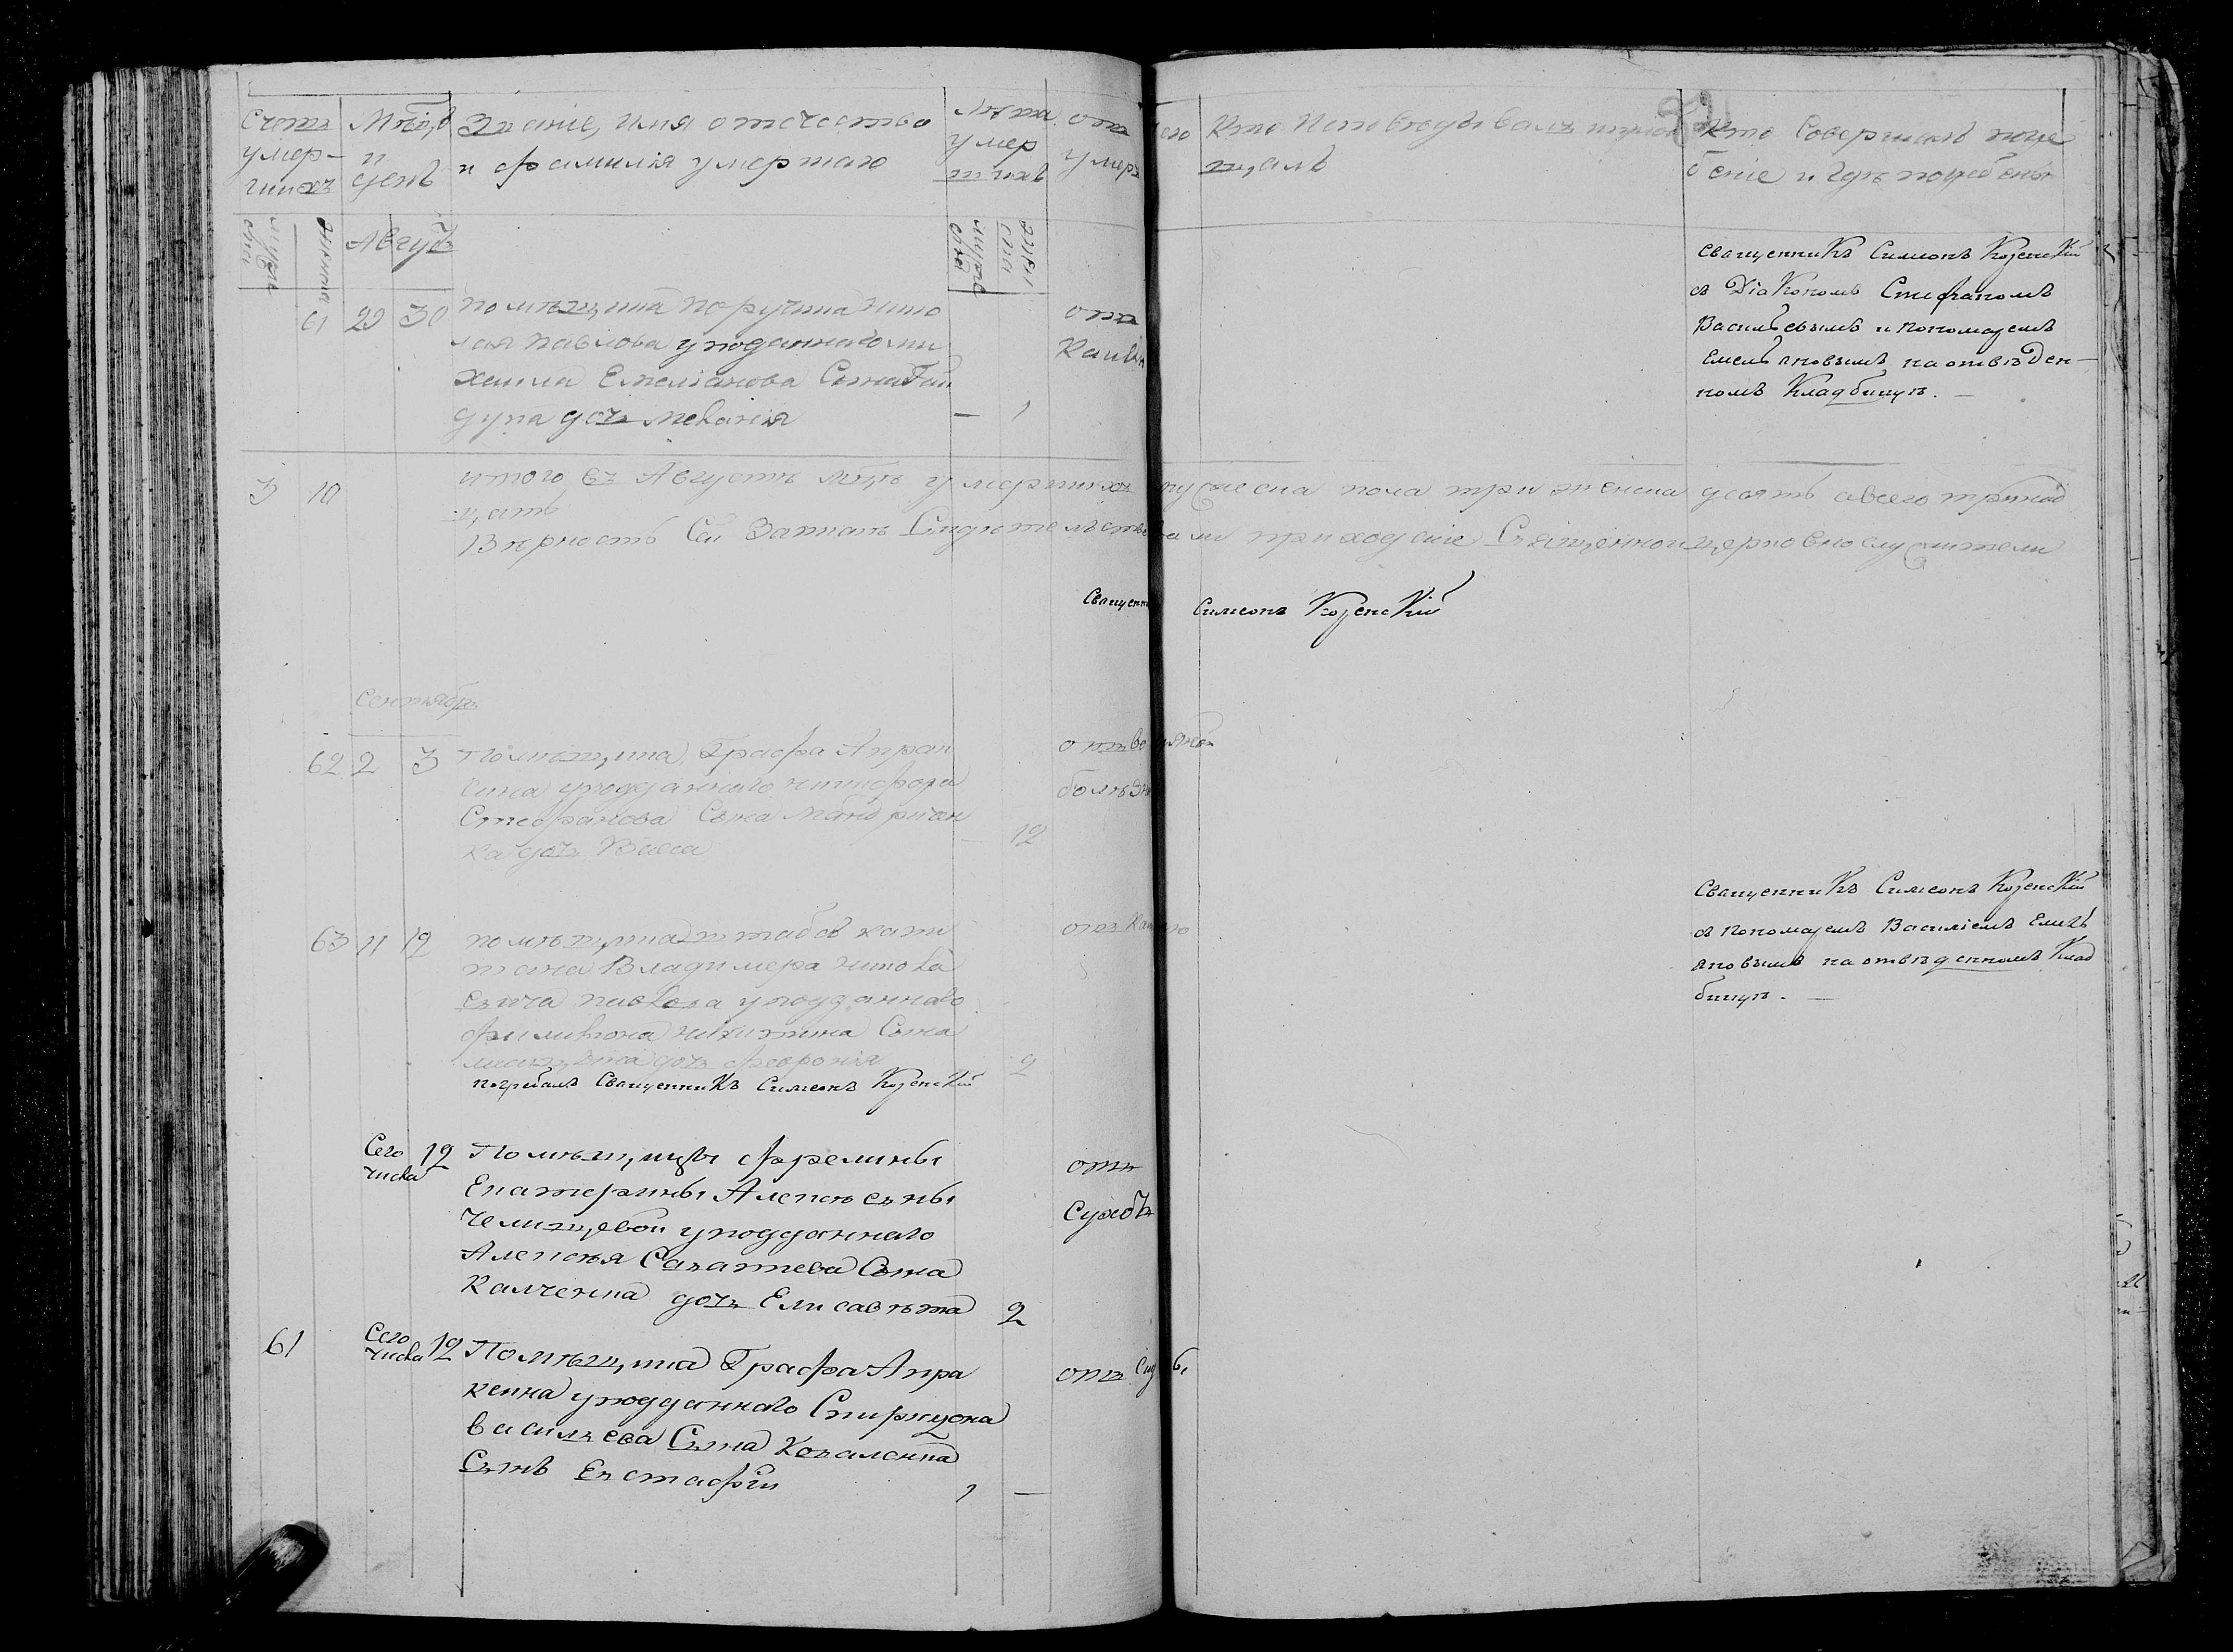 Счетъ умер-шихъ
Мѣсяцъ и день
Званіе, имя отечество
и фамилія умершаго
Лѣта умершихъ
отъ чего умеръ
Кто исповѣдывалъ и пріобщалъ
Кто Совершалъ погре
беніе и гдѣ погребены
Августъ
61 29 30 помѣщика поручика Нико
лая Павлова уподданнаго ми
хаила Емеліанова Сына
дочь Меланія — 1
отъ Кашля
Священникъ Симеонъ Козенскій
съ Діакономъ Стефаномъ
Васильевымъ и пономаремъ
Емельяновымъ на отвѣден-
номъ Кладбищѣ. —
3 10 итого въ Августѣ мцѣ умершихъ мужеска пола три женска десять а всего тринад
цать
Вѣрность Сей Записи Свидѣтельствовали приходскіе Священноцерковнослужители
Священникъ Симеонъ Козенскій
Сентябрь
62 2 3 Помѣщика Графа Апрак
сина уподданнаго Никифора
Стефанова Сына
ка дочь Васса — 12
отъ
болѣзни
63 11 12 помѣщика штабсъ капи
тана Владимера Никола
евича Павлова уподданнаго
Филимона Никитина Сына
дочь Февронія 9
отъ Кашлю
Священникъ Симеонъ Козенскій
съ пономаремъ Василіемъ Емель
яновымъ на отвѣденномъ Клад
бищѣ. —
погребалъ Священникъ Симеонъ Козенскій
Сего числа 12 Помѣщицы Фрелины
Екатерины Алексѣевны
Челищевой уподданнаго
Алексѣя Саватеева Сына
Калченка дочь Елисавѣта 2
отъ
Сухотъ
61 Сего числа 12 Помѣщика Графа Апра
ксина уподданнаго Спиридона
Васильева Сына Коваленка
Сынъ Евстафій 1 —
отъ